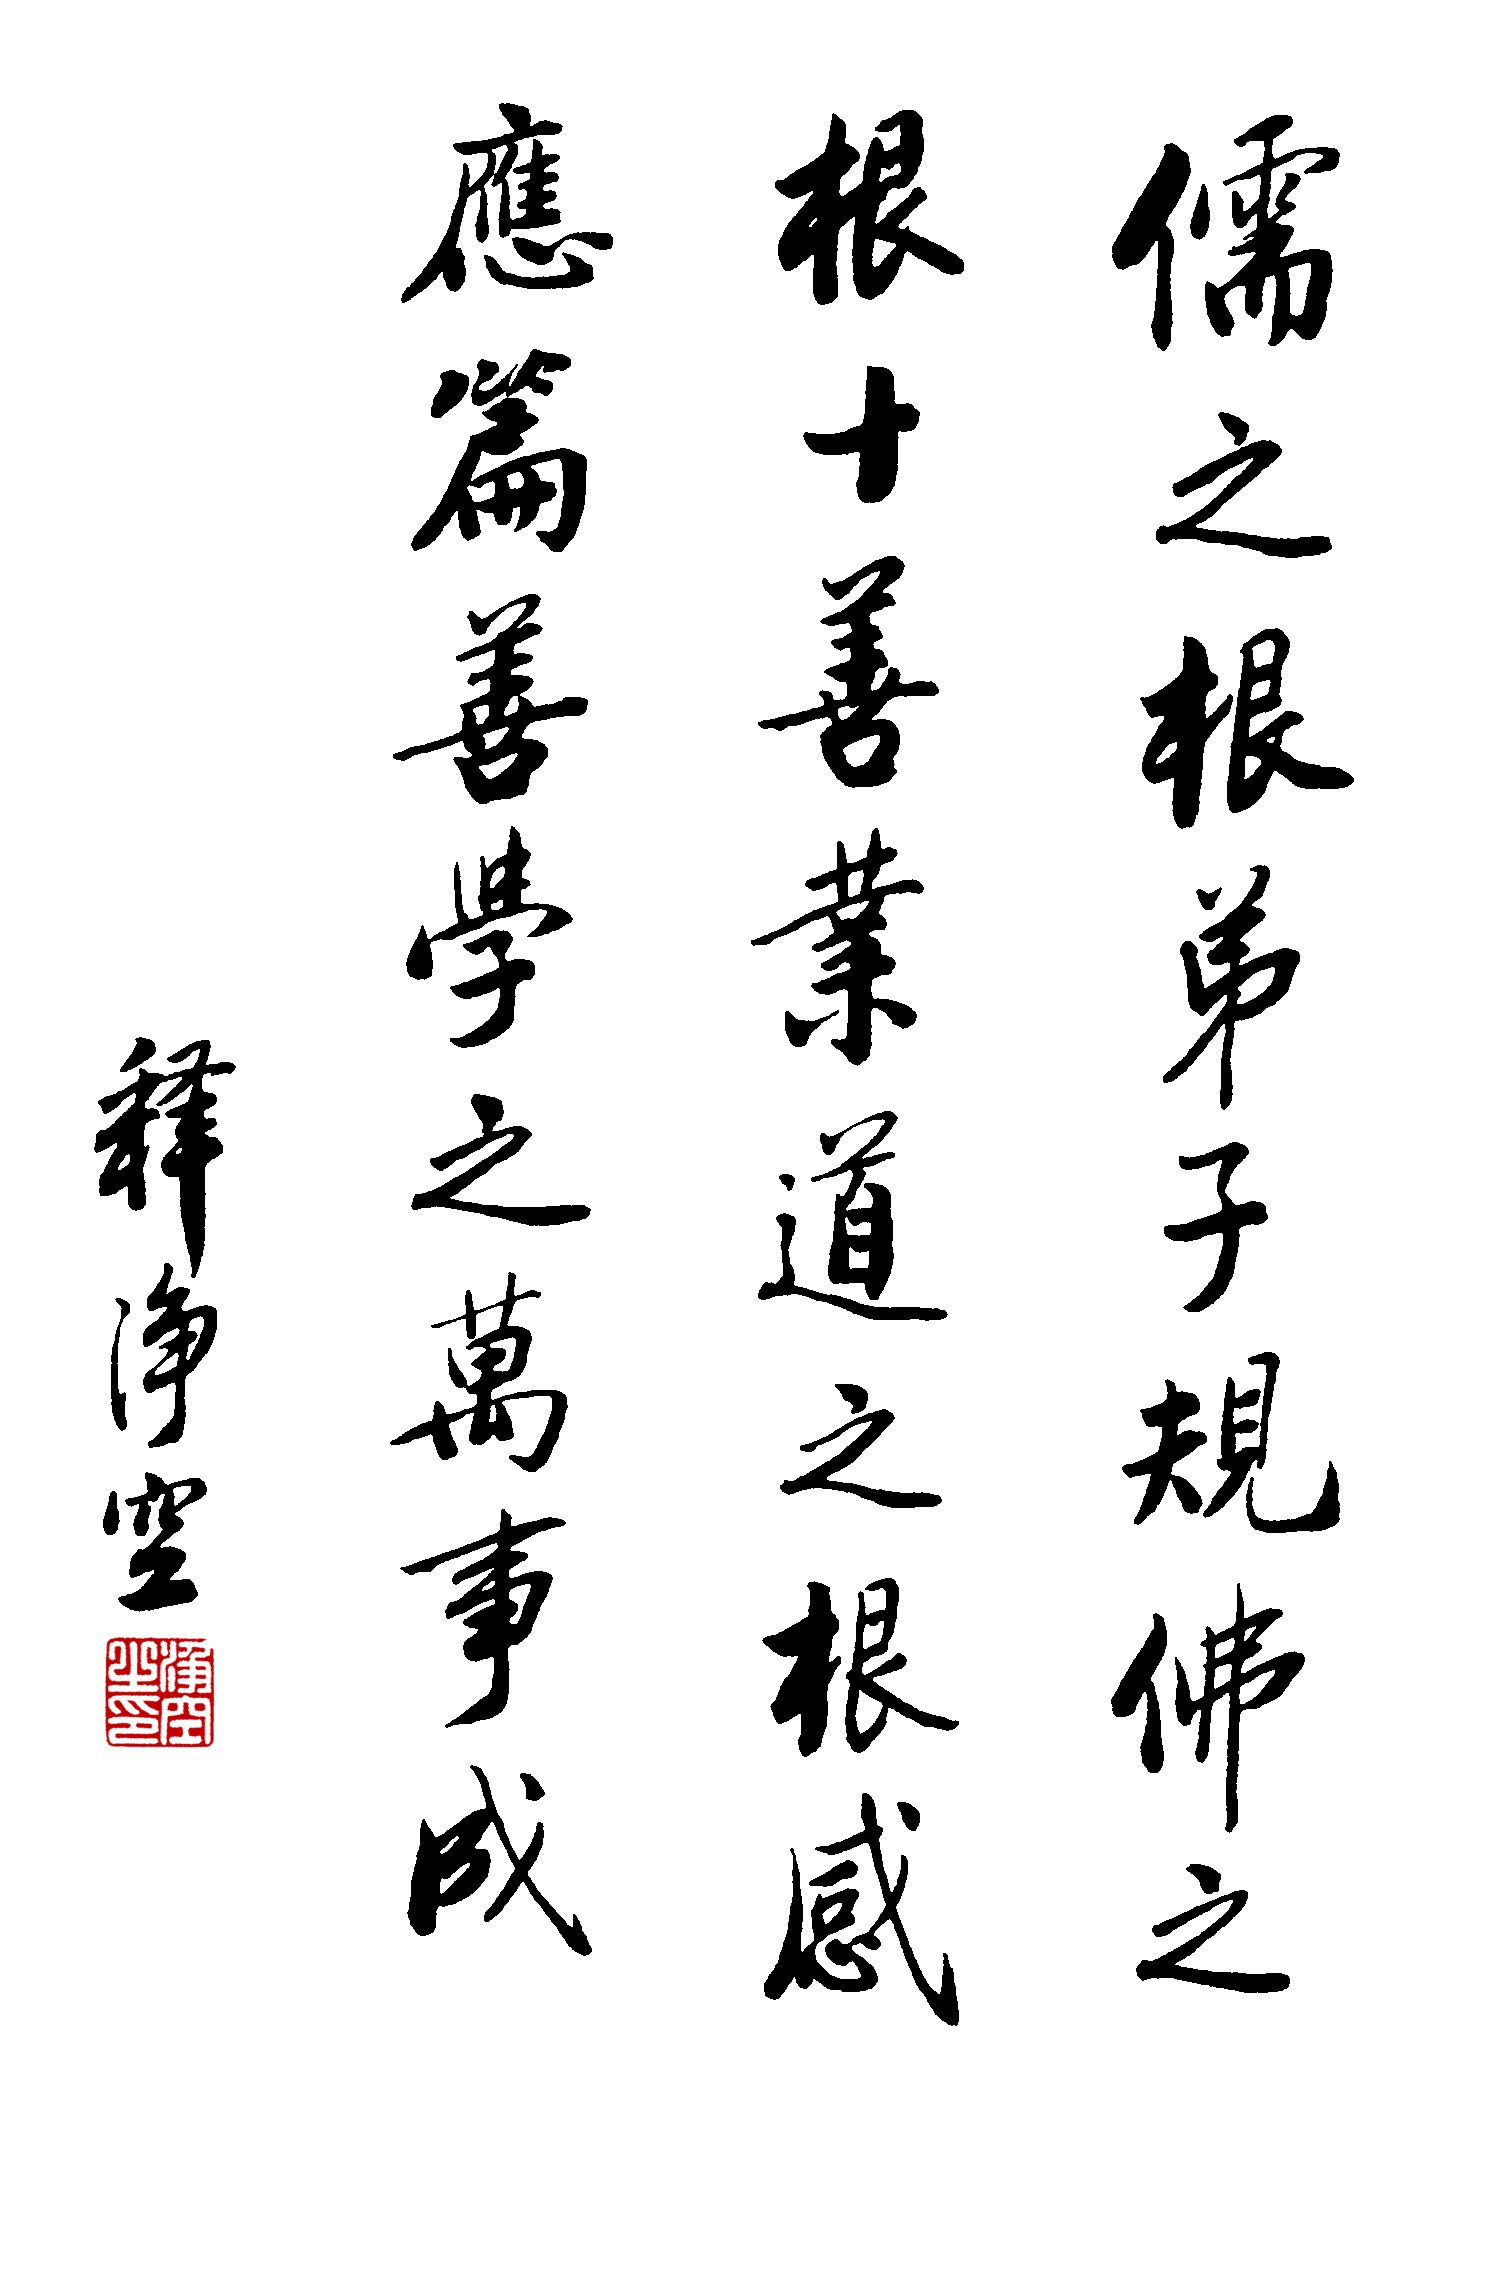 儒之根弟子規佛之
根十善業道之根感
應篇善學之萬事成
释淨空
淨空
之印